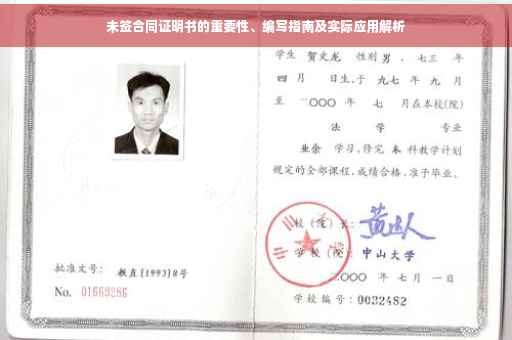 未签合同证明书的重要性、编写指南及实际应用解析
学生 贺文龙 性别 男 、七三 年
四 月 日生,于 九七 年 九 月
至 二〇〇〇 年 七 月在本校(院)
法 学 专业
业余 学习,修完 本 科教学计划
规定的全部课程,成绩合格,准予毕业。
校(院)长:
学校(院): 中山大学
二〇〇〇 年 七 月 一 日
学校编号: 0032482
批准文号: 教直(1993)8号
No. 01669286